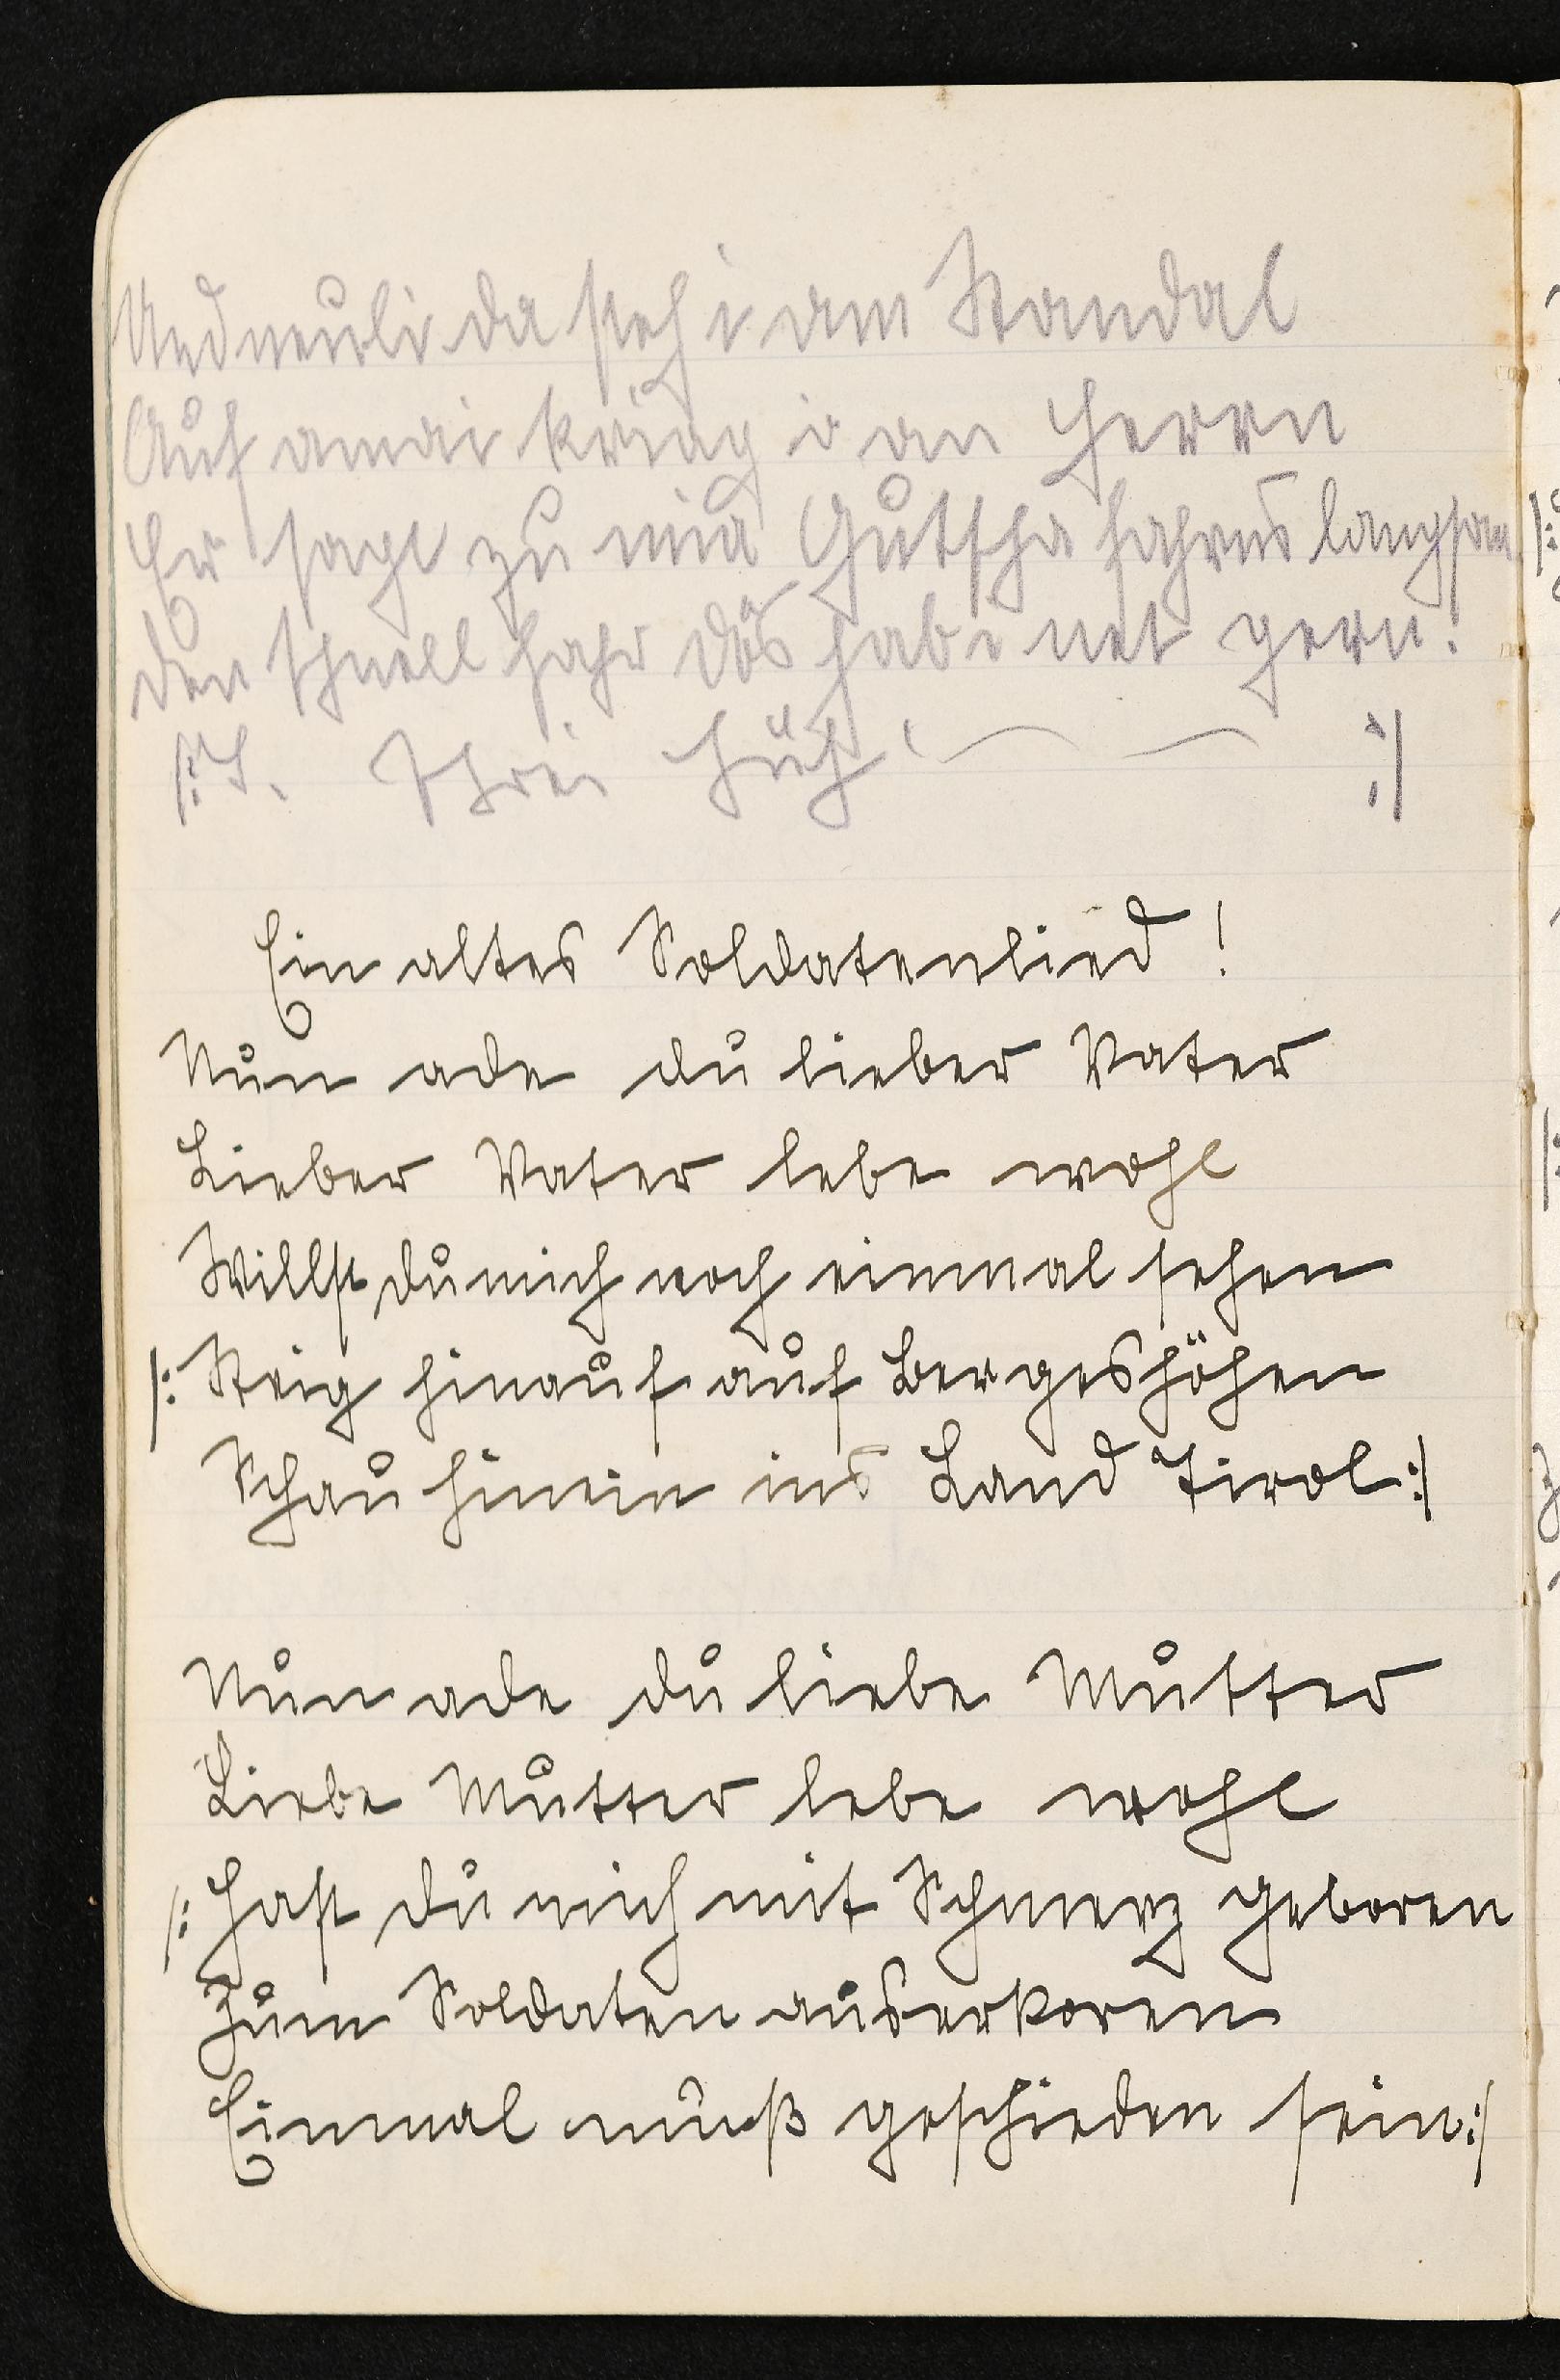 Und neuli da steh i am Standal
Auf amai kriag i an Herrn
Er sagt zu mia Gutscha fahrns langsam
den schnell fahr dös hab i net gern!
|: J. Ihrei Hüh :|
Ein altes Soldatenlied!
Nun ade du lieber Vater
Lieber Vater lebe wohl
Willst du mich noch einmal sehen
|: Steig hinauf auf Bergeshöhen
Schau hinein ins Land Tirol :|
Nun ade du liebe Mutter
Liebe Mutter lebe wohl
|: Hast du mich mit Schmerz geboren
Zum Soldaten auserkoren
Einmal muß geschieden sein :|